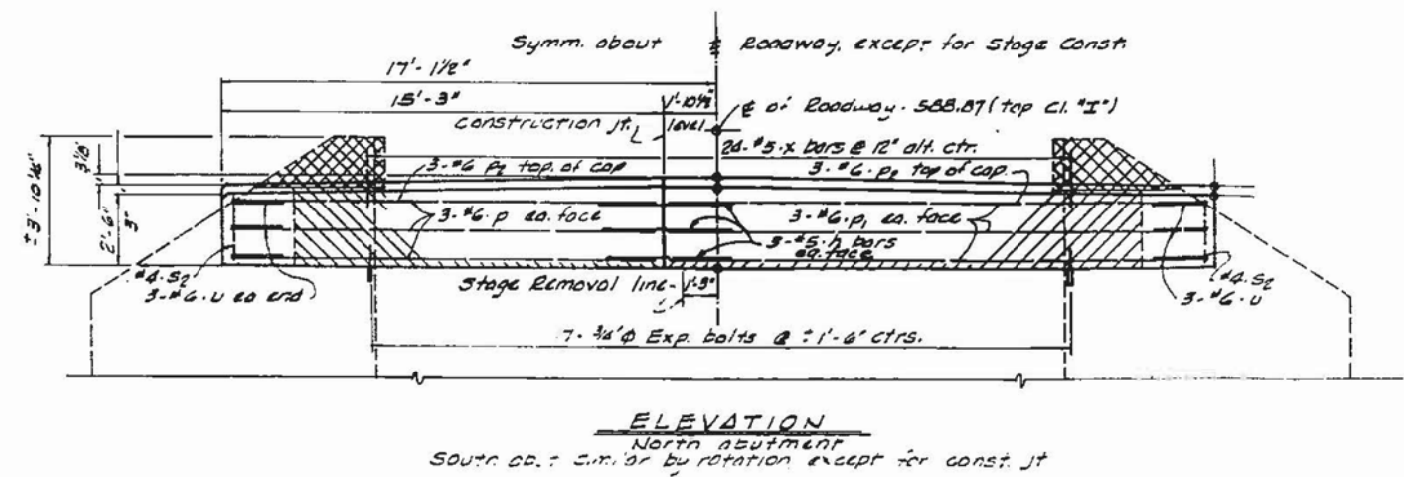 Symm. about ℄ Roadway, except for stage const.
17'-1½"
15'-3"
1'-10½"
℄ of Roadway - 588.87 (top Cl. "I")
Construction jt.
level
24-#5-x bars @ 12" alt. ctr.
3-#6 p₂ top of cap
3-#6-p₂ top of cap.
3⅛"
±3'-10⅛"
2'-6"
3"
3-#6-p ea. face
3-#6-p₁ ea. face
3-#5-h bars
ea. face
#4-S₂
3-#6-u ea end
Stage Removal line
1'-3"
#4-S₂
3-#6-u
7-¾"φ Exp. bolts @ ±1'-6" ctrs.
ELEVATION
North abutment
South abt similar by rotation except for const. jt